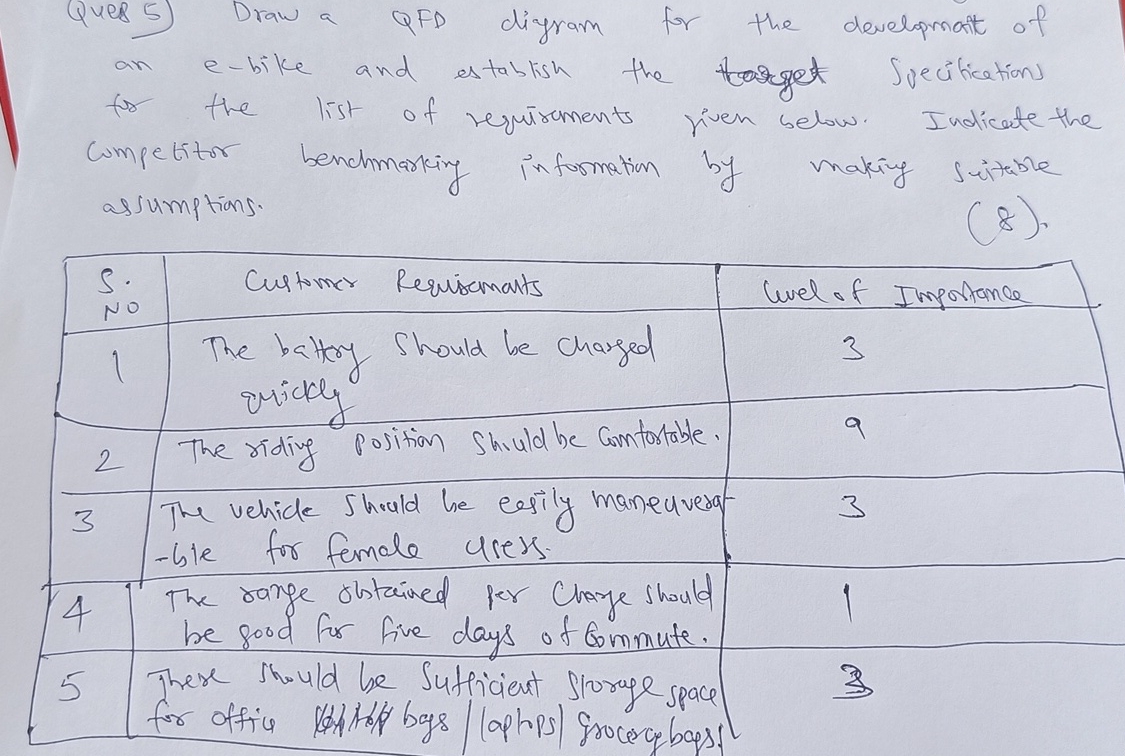 Ques 5) Draw a QFD digram for the development of
an e-bike and establish the target Specifications
for the list of requirements given below. Indicate the
Competitor benchmarking information by making suitable
assumptions.
(8).
S. NO Customer Requirements Level of Importance
1 The battery should be charged 3
quickly
2 The riding position should be Comfortable. 9
3 The vehicle should be easily maneuvera 3
-ble for female users.
4 The range obtained per Charge should 1
be good for five days of Commute.
5 There should be Sufficient Storage space 3
for office bags / laptops / grocery bags.